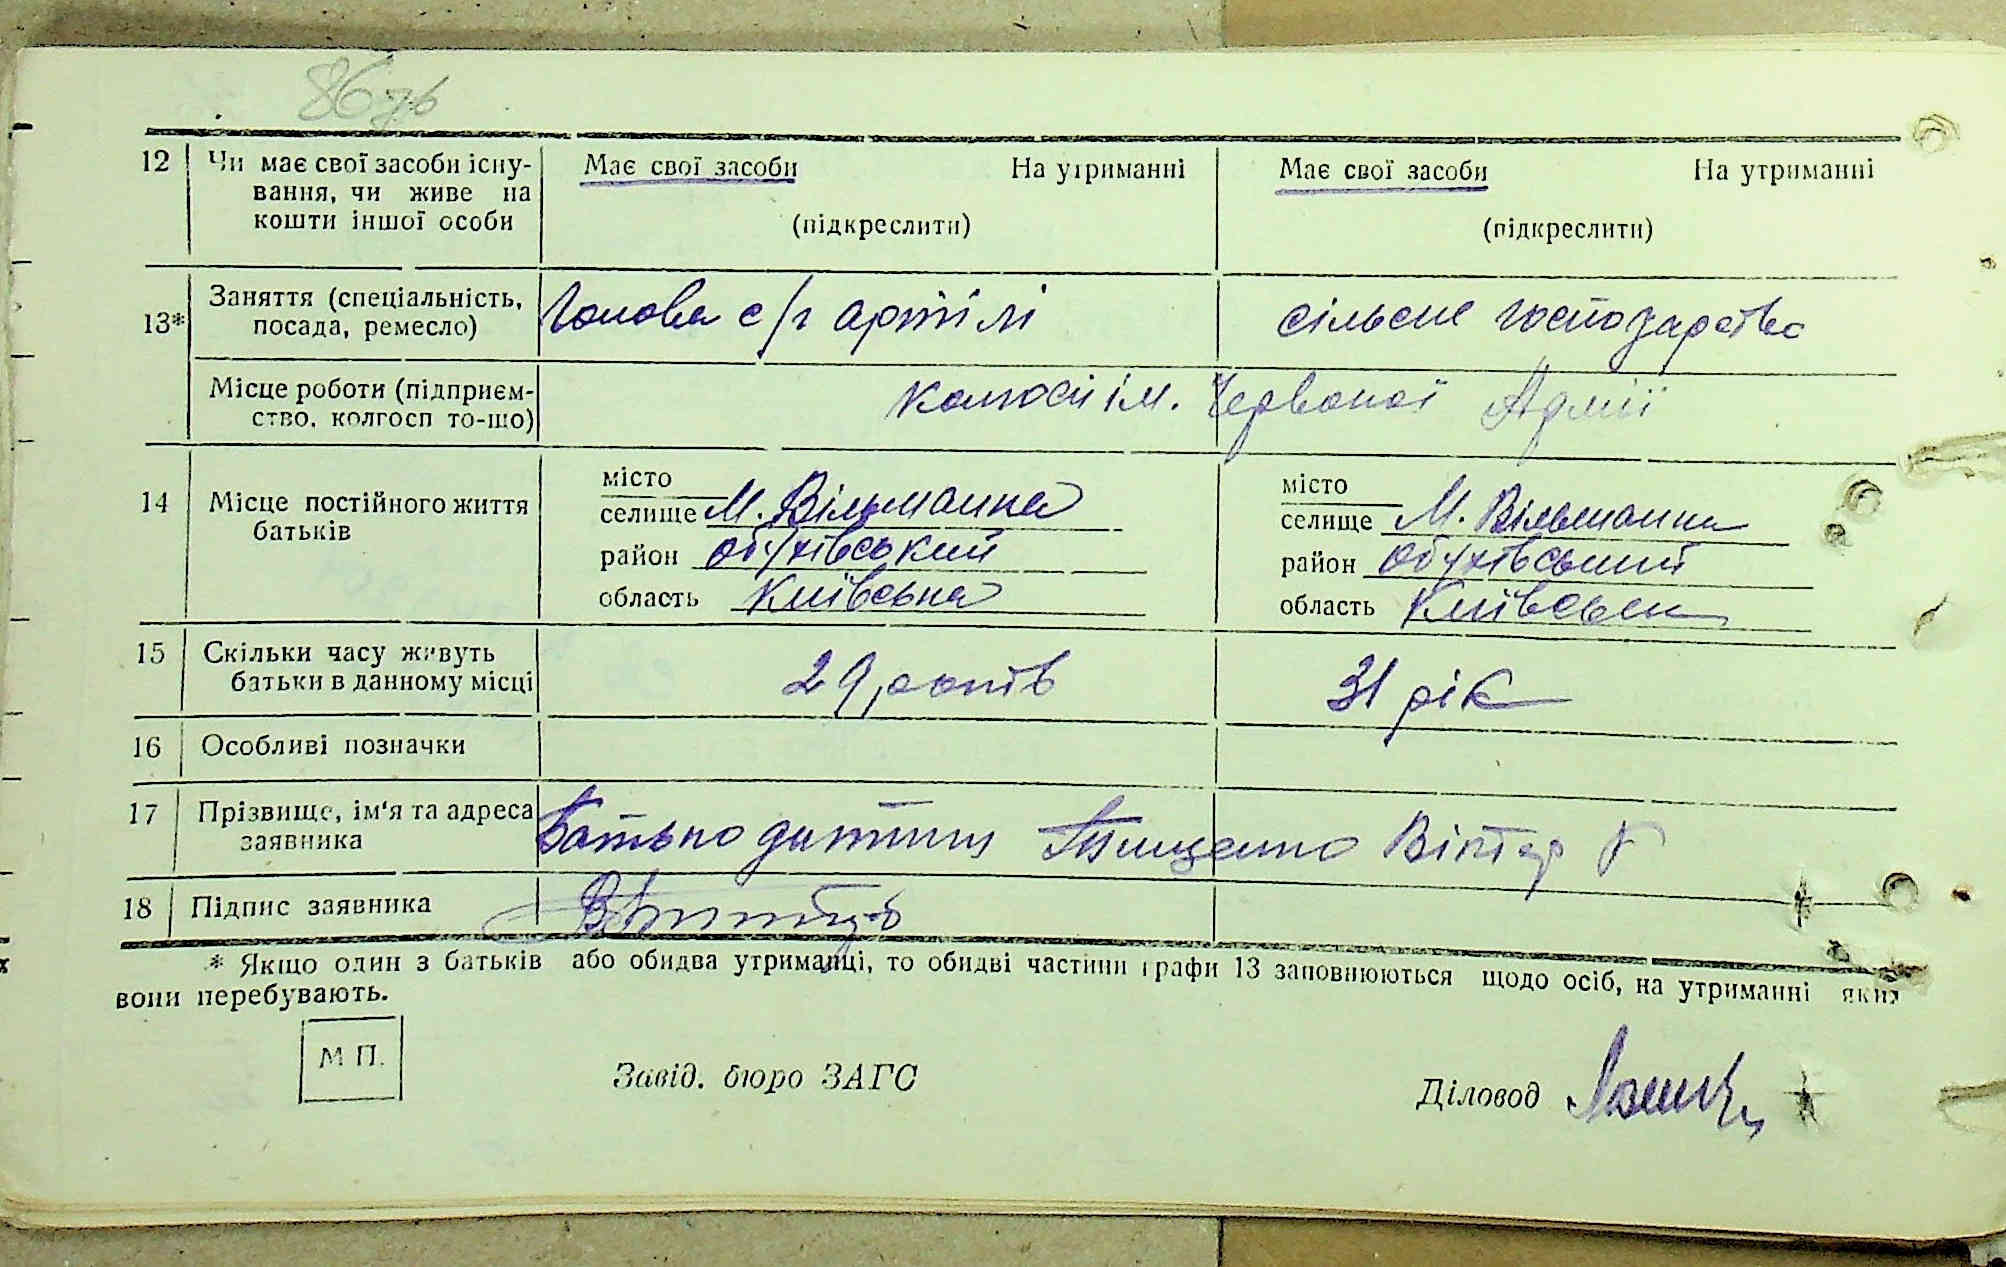 86 зв
12 Чи має свої засоби існу-
вання, чи живе на
кошти іншої особи
Має свої засоби На утриманні
(підкреслити)
Має свої засоби На утриманні
(підкреслити)
13* Заняття (спеціальність,
посада, ремесло)
Голова с/г артілі
сільське господарство
Місце роботи (підприєм-
ство, колгосп то-що)
колгосп ім. Червоної Армії
14 Місце постійного життя
батьків
місто
селище М. Вільшанка
район Обухівський
область Київська
місто
селище М. Вільшанка
район Обухівський
область Київська
15 Скільки часу живуть
батьки в данному місці
29 років
31 рік
16 Особливі позначки
17 Прізвище, ім'я та адреса
заявника
Батько дитини Тищенко Віктор
18 Підпис заявника
* Якщо один з батьків або обидва утриманці, то обидві частини графи 13 заповнюються щодо осіб, на утриманні яких
вони перебувають.
М П.
Завід. бюро ЗАГС
Діловод